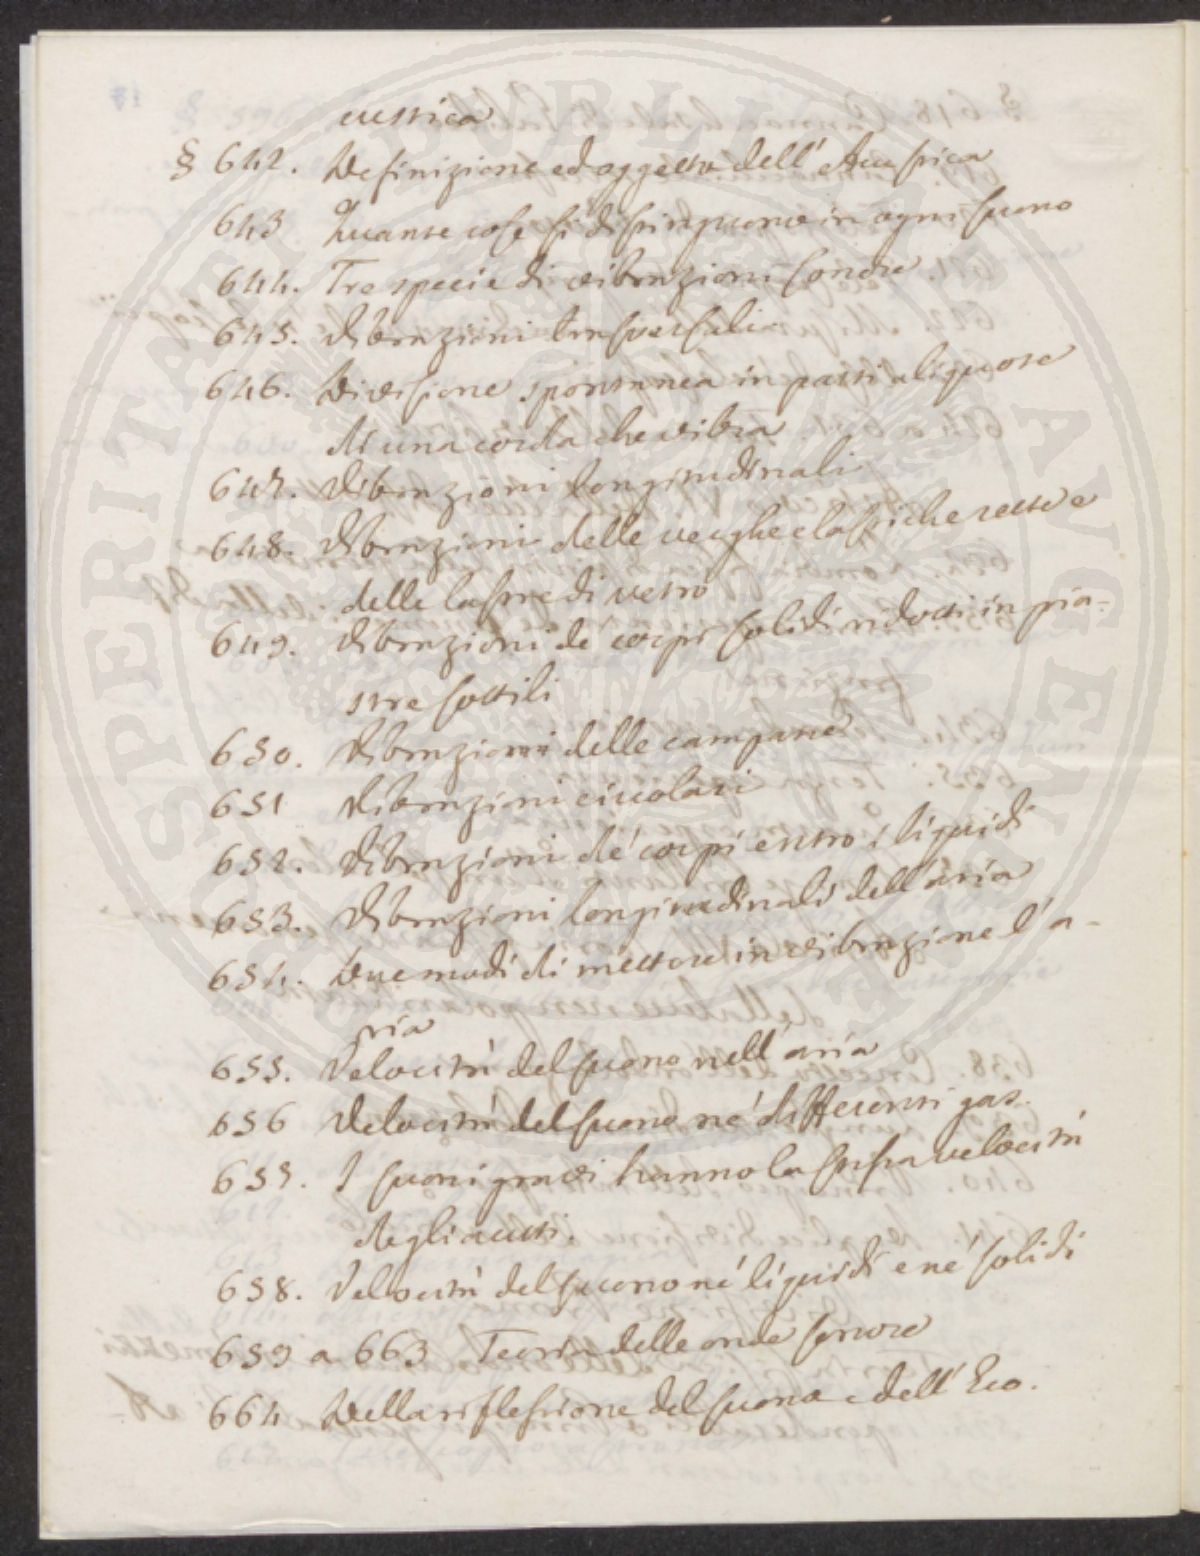 custica
§ 642. Definizione ed oggetto dell' Acustica
643 Quante cose si distinguono in ogni suono
644. Tre specie di vibrazioni sonore.
645. Vibrazioni trasversali
646. Divisione spontanea in parti aliquote
di una corda che vibra
647. Vibrazioni longitudinali
648. Vibrazioni delle verghe elastiche rette e
delle lastre di vetro
649. Vibrazioni de' corpi solidi ridotti in pia-
stre sottili
650. Vibrazioni delle campane
651 Vibrazioni circolari
652. Vibrazioni de' corpi entro i liquidi
653. Vibrazioni longitudinali dell'aria
654. Due modi di mettere in vibrazione l'a-
ria
655. Velocità del suono nell'aria
656 Velocità del suono ne' differenti gas.
657. I suoni gravi hanno la stessa velocità
degli acuti.
658. Velocità del suono ne' liquidi e ne' solidi
659 a 663 Teoria delle onde sonore
664 Della riflessione del suono e dell' Eco.